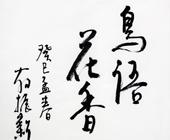 鳥語
花香
癸巳孟春